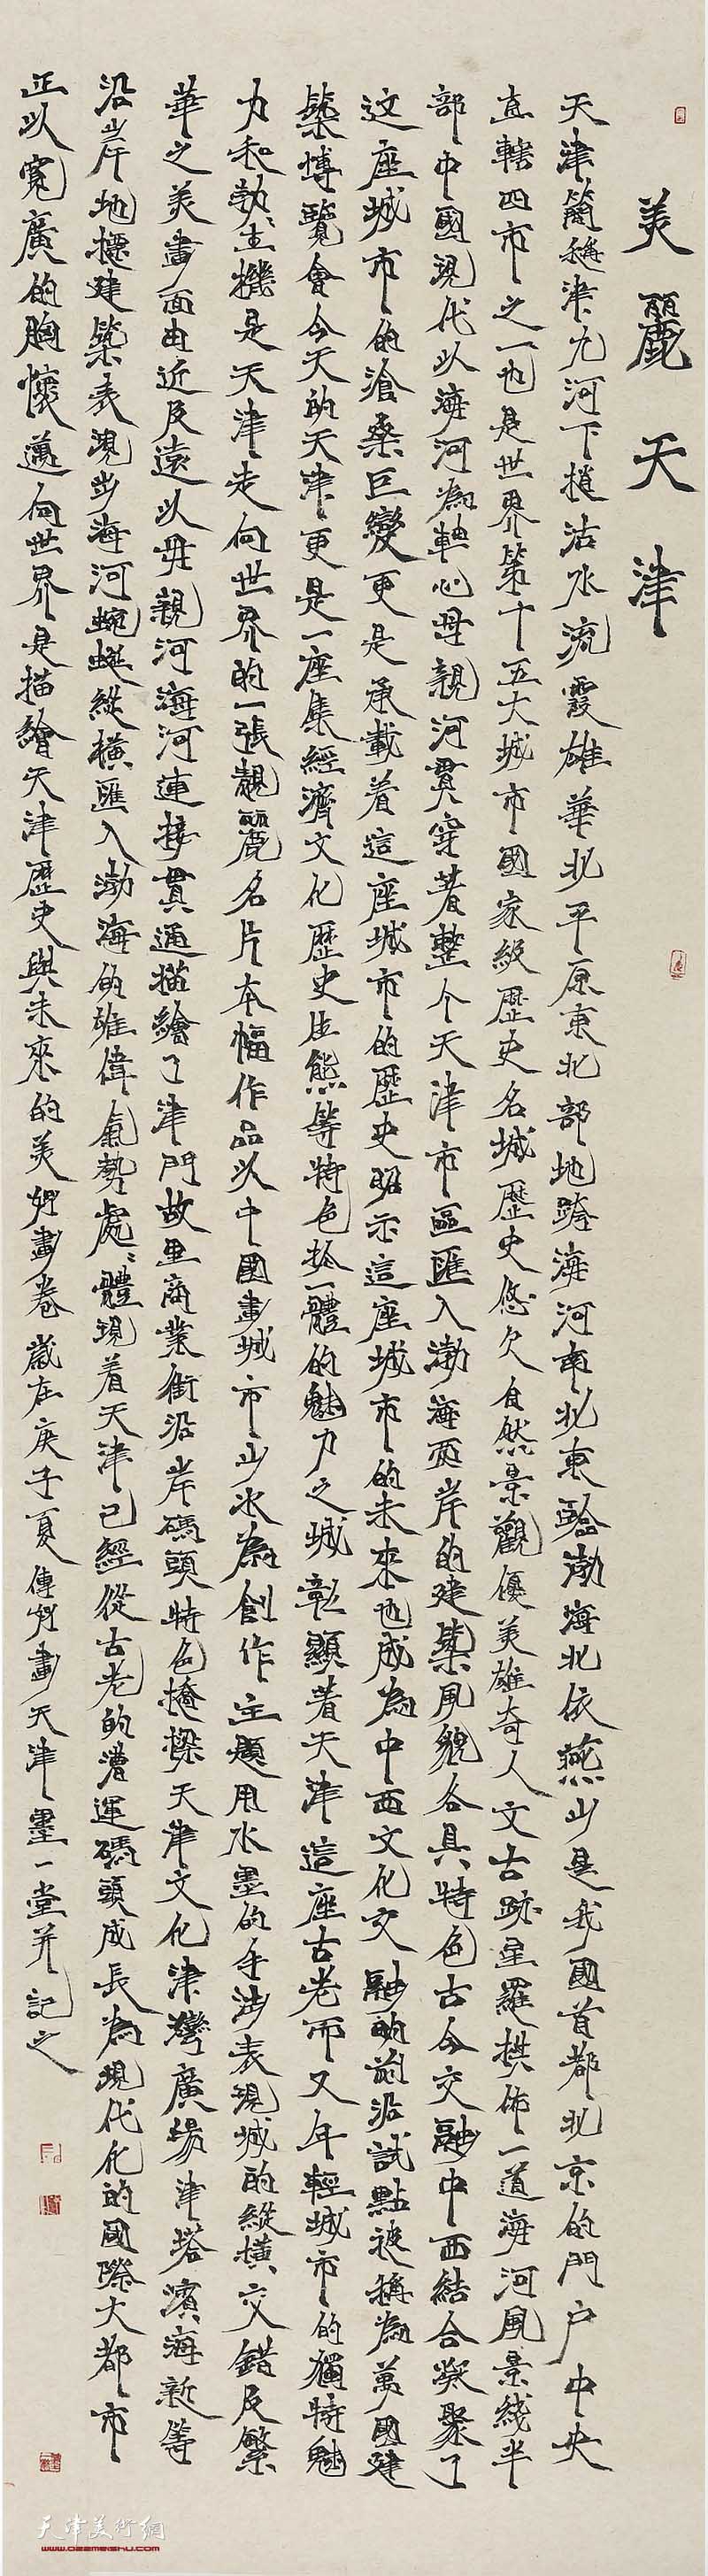 美麗天津
天津簡稱津九河下梢沽水流霞雄華北平原東北部地跨海河南北東臨渤海北依燕山是我國首都北京的門户中央
直轄四市之一也是世界第十五大城市國家級歷史名城歷史悠久自然景觀優美雄奇人文古跡星羅棋佈一道海河風景綫半
部中國現代以海河為軸心母親河貫穿着整个天津市區匯入渤海兩岸的建築風貌各具特色古今交融中西結合凝聚了
这座城市的滄桑巨變更是承載着這座城市的歷史昭示這座城市的未來也成為中西文化交融的前沿試點被稱為萬國建
築博覽會今天的天津更是一座集經濟文化歷史生態等特色於一體的魅力之城彰顯着天津這座古老而又年輕城市的獨特魅
力和勃勃生機是天津走向世界的一張靚麗名片本幅作品以中國畫城市山水為創作主題用水墨的手法表現城的縱橫交錯及繁
華之美畫面由近及遠以母親河海河連接貫通描繪了津門故里商業街沿岸碼頭特色橋樑天津文化津灣廣場津塔濱海新等
沿岸地標建築表現出海河蜿蜒縱橫匯入渤海的雄偉氣勢處處體現着天津已經從古老的漕運碼頭成長為現代化的國際大都市
正以寬廣的胸懷邁向世界是描繪天津歷史與未來的美好畫卷歲在庚子夏傳好畫天津墨一堂并記之
天津美術網
www.022meishu.com